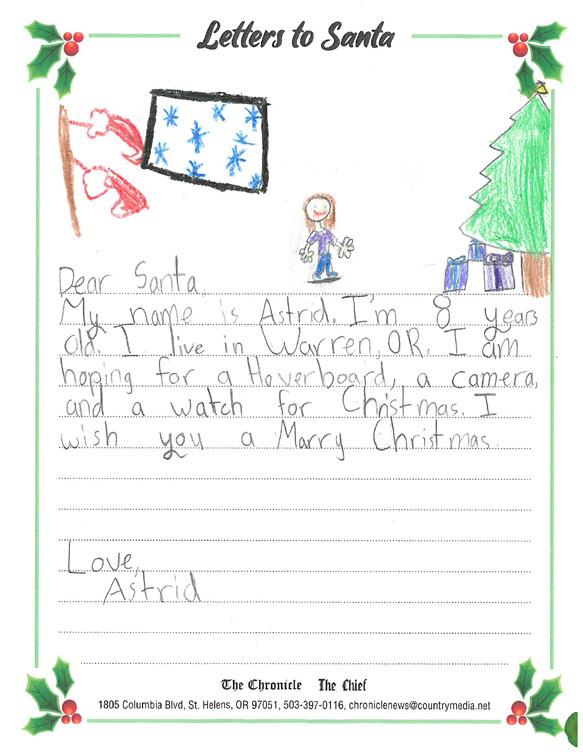 Letters to Santa
Dear Santa,
My name is Astrid. I'm 8 years
old. I live in Warren, OR. I am
hoping for a Hoverboard, a camera,
and a watch for Christmas. I
wish you a Marry Christmas.
Love,
Astrid
The Chronicle The Chief
1805 Columbia Blvd, St. Helens, OR 97051, 503-397-0116, chroniclenews@countrymedia.net